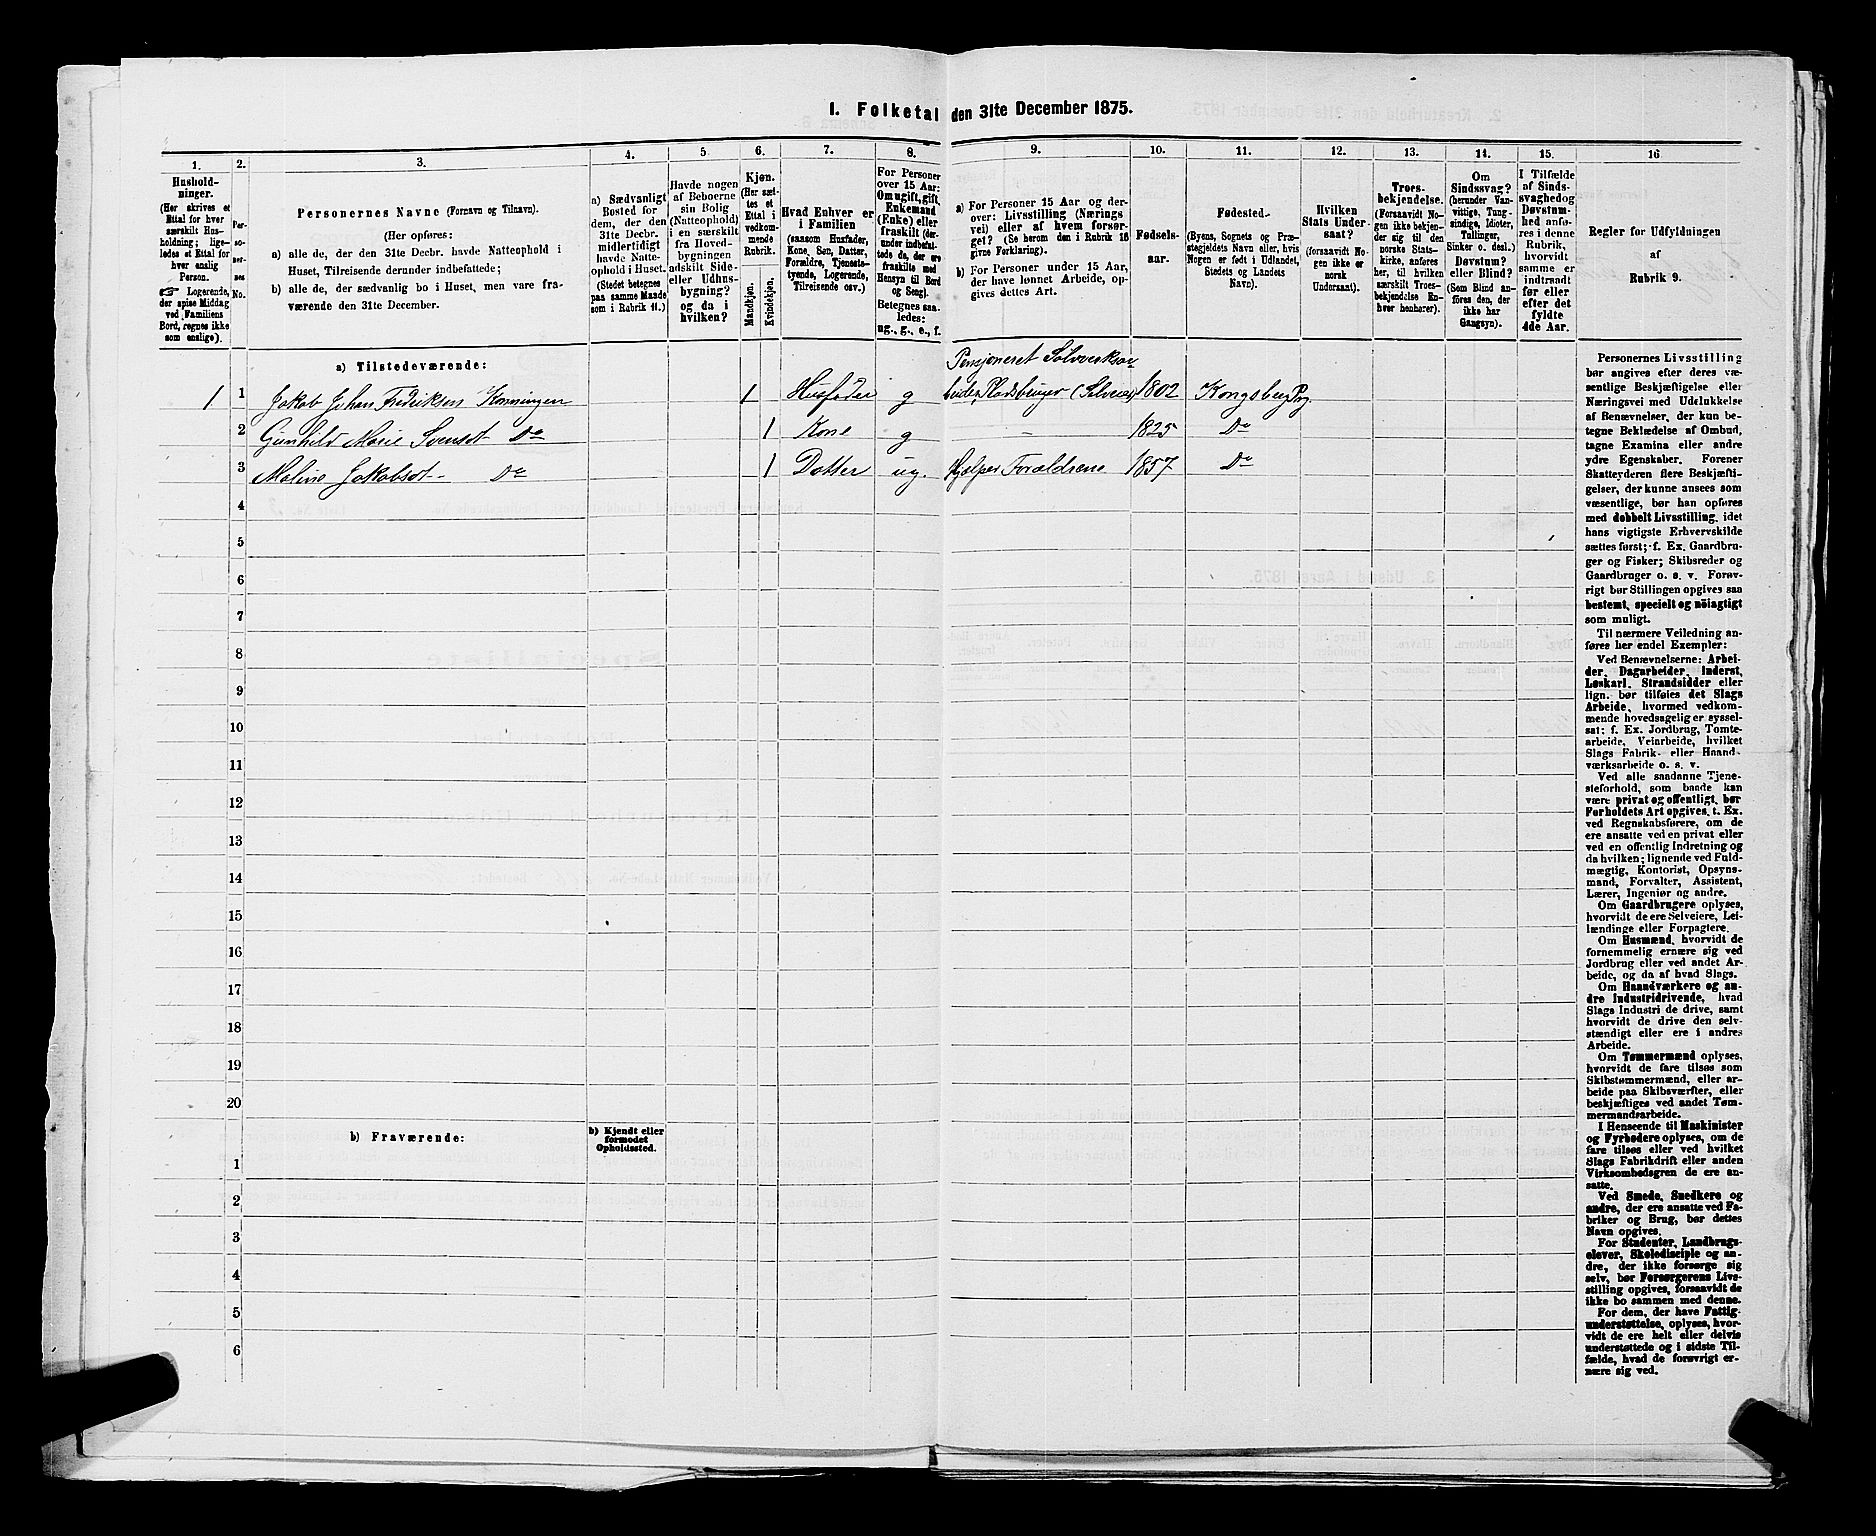 I. Folketal den 31te December 1875.
1. 2. 3. 4. 5. 6. 7. 8. 9. 10. 11. 12. 13. 14. 15. 16
Hushold-
ninger.
(Her skrives et
Ettal for hver
særskilt Hus-
holdning; lige-
ledes et Ettal for
hver enslig
Person.
☞ Logerende,
der spise Middag
ved Familiens
Bord, regnes ikke
som enslige).
Per-
so-
ner-
nes
No.
Personernes Navne (Fornavn og Tilnavn).
(Her opføres:
a) alle de, der den 31te Decbr. havde Natteophold i
Huset, Tilreisende derunder indbefattede;
b) alle de, der sædvanlig bo i Huset, men vare fra-
værende den 31te December.
a) Sædvanligt
Bosted for
dem, der den
31te Decbr.
midlertidigt
havde Natte-
ophold i Huset.
(Stedet betegnes
paa samme Maade
som i Rubrik 11.)
Havde nogen
af Beboerne
sin Bolig
(Natteophold)
i en særskilt
fra Hoved-
bygningen
adskilt Side-
eller Udhus-
bygning?
og da i
hvilken?
Kjøn.
(Her sæt-
tes et
Ettal i
vedkom-
mende
Rubrik.
Mandkjøn.
Kvindekjøn.
Hvad Enhver er
i Familien
(saasom Husfader,
Kone, Søn, Datter,
Forældre, Tjeneste-
tyende, Logerende,
Tilreisende osv.)
For Personer
over 15 Aar:
Om ugift, gift,
Enkemand
(Enke) eller
fraskilt (der-
under indbefat-
tede de, der ere
fraskilte med
Hensyn til Bord
og Seng).
Betegnes saa-
ledes:
ug., g., e., f.
a) For Personer 15 Aar og der-
over: Livsstilling (Nærings
vei) eller af hvem forsør-
get? (Se herom den i Rubrik 16
givne Forklaring).
b) For Personer under 15 Aar,
der have lønnet Arbeide, op-
gives dettes Art.
Fødsels-
aar.
Fødested.
(Byens, Sognets og Præ-
stegjeldets Navn eller, hvis
Nogen er født i Udlandet,
Stedets og Landets
Navn).
Hvilken
Stats Under-
saat?
(forsaavidt No-
gen ikke er
norsk
Undersaat).
Troes-
bekjendelse.
(Forsaavidt No-
gen ikke bekjen-
der sig til den
norske Stats-
kirke, anføres
her, til hvilken
særskilt Troes-
bekjendelse En-
hver henhører).
Om
Sindssvag?
(herunder Van-
vittige, Tung-
sindige, Idioter,
Tullinger,
Sinker o. desl.)
Døvstum?
eller Blind?
(Som Blind an-
føres den, der
ikke har
Gangsyn).
I Tilfælde
af Sinds-
svaghed og
Døvstum-
hed anfø-
res i denne
Rubrik,
hvorvidt
samme er
indtraadt
før eller
efter det
fyldte
4de Aar.
Regler for Udfyldningen
af
Rubrik 9.
a) Tilstedeværende:
Pensjoneret Sølvverksar
1 1 Jakob Johan Fredriksen Konningen 1 Husfader g beider, Pladsbruger (Selveier) 1802 Kongsberg Pg
2 Gunhild Marie Svensdt Do 1 Kone g - 1825 Do
3 Maline Jakobsdt Do 1 Datter ug. Hjælper Forældrene 1857 Do
4
5
6
7
8
9
10
11
12
13
14
15
16
17
18
19
20
b) Fraværende:
b) Kjendt eller
formodet
Opholdssted.
1
2
3
4
5
6
Personernes Livsstilling
bør angives efter deres væ-
sentlige Beskjæftigelse eller
Næringsvei med Udelukkelse
af Benævnelser, der kun be-
tegne Beklædelse af Ombud,
tagne Examina eller andre
ydre Egenskaber. Forener
Skatteyderen flere Beskjæfti-
gelser, der kunne ansees som
væsentlige, bør han opføres
med dobbelt Livsstilling, idet
hans vigtigste Erhvervskilde
sættes først; f. Ex. Gaardbru-
ger og Fisker; Skibsreder og
Gaardbruger o. s. v. Forøv-
rigt bør Stillingen opgives saa
bestemt, specielt og nöiagtigt
som muligt.
Til nærmere Veiledning an-
føres her endel Exempler:
Ved Benævnelserne: Arbei-
der, Dagarbeider, Inderst,
Løskarl, Strandsidder eller
lign. bør tilføies det Slags
Arbeide, hvormed vedkom-
mende hovedsagelig er syssel-
sat; f. Ex. Jordbrug, Tomte-
arbeide, Veiarbeide, hvilket
Slags Fabrik- eller Haand-
værksarbeide o. s. v.
Ved alle saadanne Tjene-
steforhold, som baade kan
være privat og offentligt, bør
Forholdets Art opgives, t. Ex.
ved Regnskabsførere, om de
ere ansatte ved en privat eller
ved en offentlig Indretning og
da hvilken; lignende ved Fuld-
mægtig, Kontorist, Opsyns-
mand, Forvalter, Assistent,
Lærer, Ingeniør og andre.
Om Gaardbrugere oplyses,
hvorvidt de ere Selveiere, Lei-
lændinge eller Forpagtere.
Om Husmænd, hvorvidt de
fornemmelig ernære sig ved
Jordbrug eller ved andet Ar-
beide, og da af hvad Slags.
Om Haandværkere og an-
dre Industridrivende, hvad
Slags Industri de drive, samt
hvorvidt de drive den selv-
stændigt eller ere i andres
Arbeide.
Om Tømmermænd oplyses,
hvorvidt de fare tilsøs som
Skibstømmermænd, eller ar-
beide paa Skibsværfter, eller
beskjæftiges ved andet Tøm-
mermandsarbeide.
I Henseende til Maskinister
og Fyrbødere oplyses, om de
fare tilsøs eller ved hvilket
Slags Fabrikdrift eller anden
Virksomhedsgren de ere an-
satte.
Ved Smede, Snedkere og
andre, der ere ansatte ved Fa-
briker og Brug, bør dettes
Navn opgives.
For Studenter, Landbrugs-
elever, Skoledisciple og an-
dre, der ikke forsørge sig
selv, bør Forsørgerens Livs-
stilling opgives, forsaavidt de
ikke bo sammen med denne.
For dem, der have Fattig-
understøttelse, oplyses, hvor-
vidt de ere helt eller delvis
understøttede og i sidste Til-
fælde, hvad de forøvrigt er-
nære sig ved.